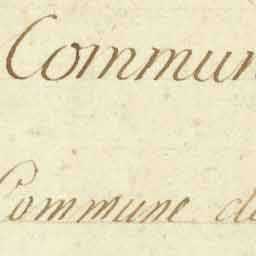 Commun
Commune de